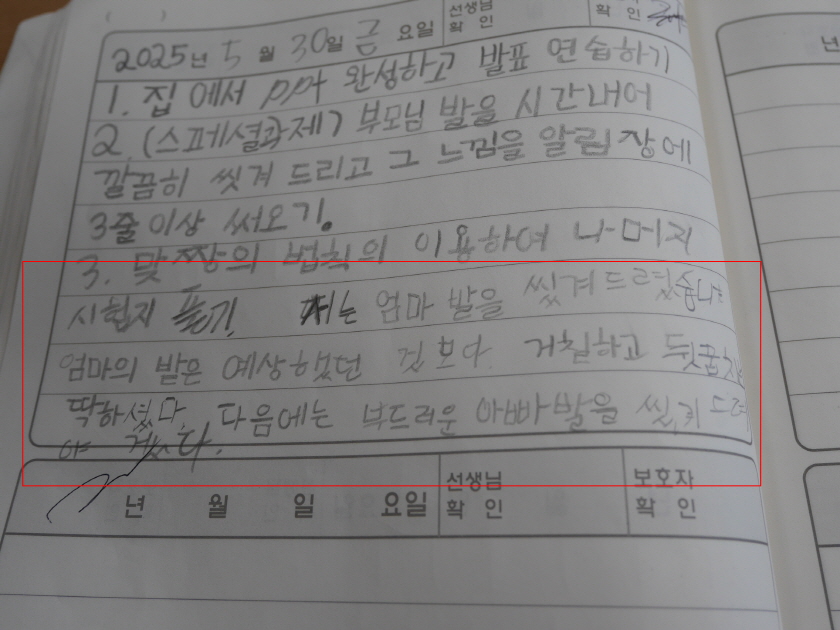 ( )
선생님 확 인
확 인
2025년 5월 30일 금요일
1. 집에서 ppt 완성하고 발표 연습하기
2. (스페셜과제) 부모님 발을 시간내어
깔끔히 씻겨 드리고 그 느낌을 알림장에
3줄이상 써오기.
3. 맞짱의 법칙의 이용하여 나머지
시험지 풀기. 저는 엄마 발을 씼겨드렸습니다
엄마의 발은 예상했던 것보다 거칠하고 뒷꿈치는
딱하셨다. 다음에는 부드러운 아빠발을 씼겨 드려
야 겠다.
년 월 일 요일
선생님 확 인
보호자 확 인
년